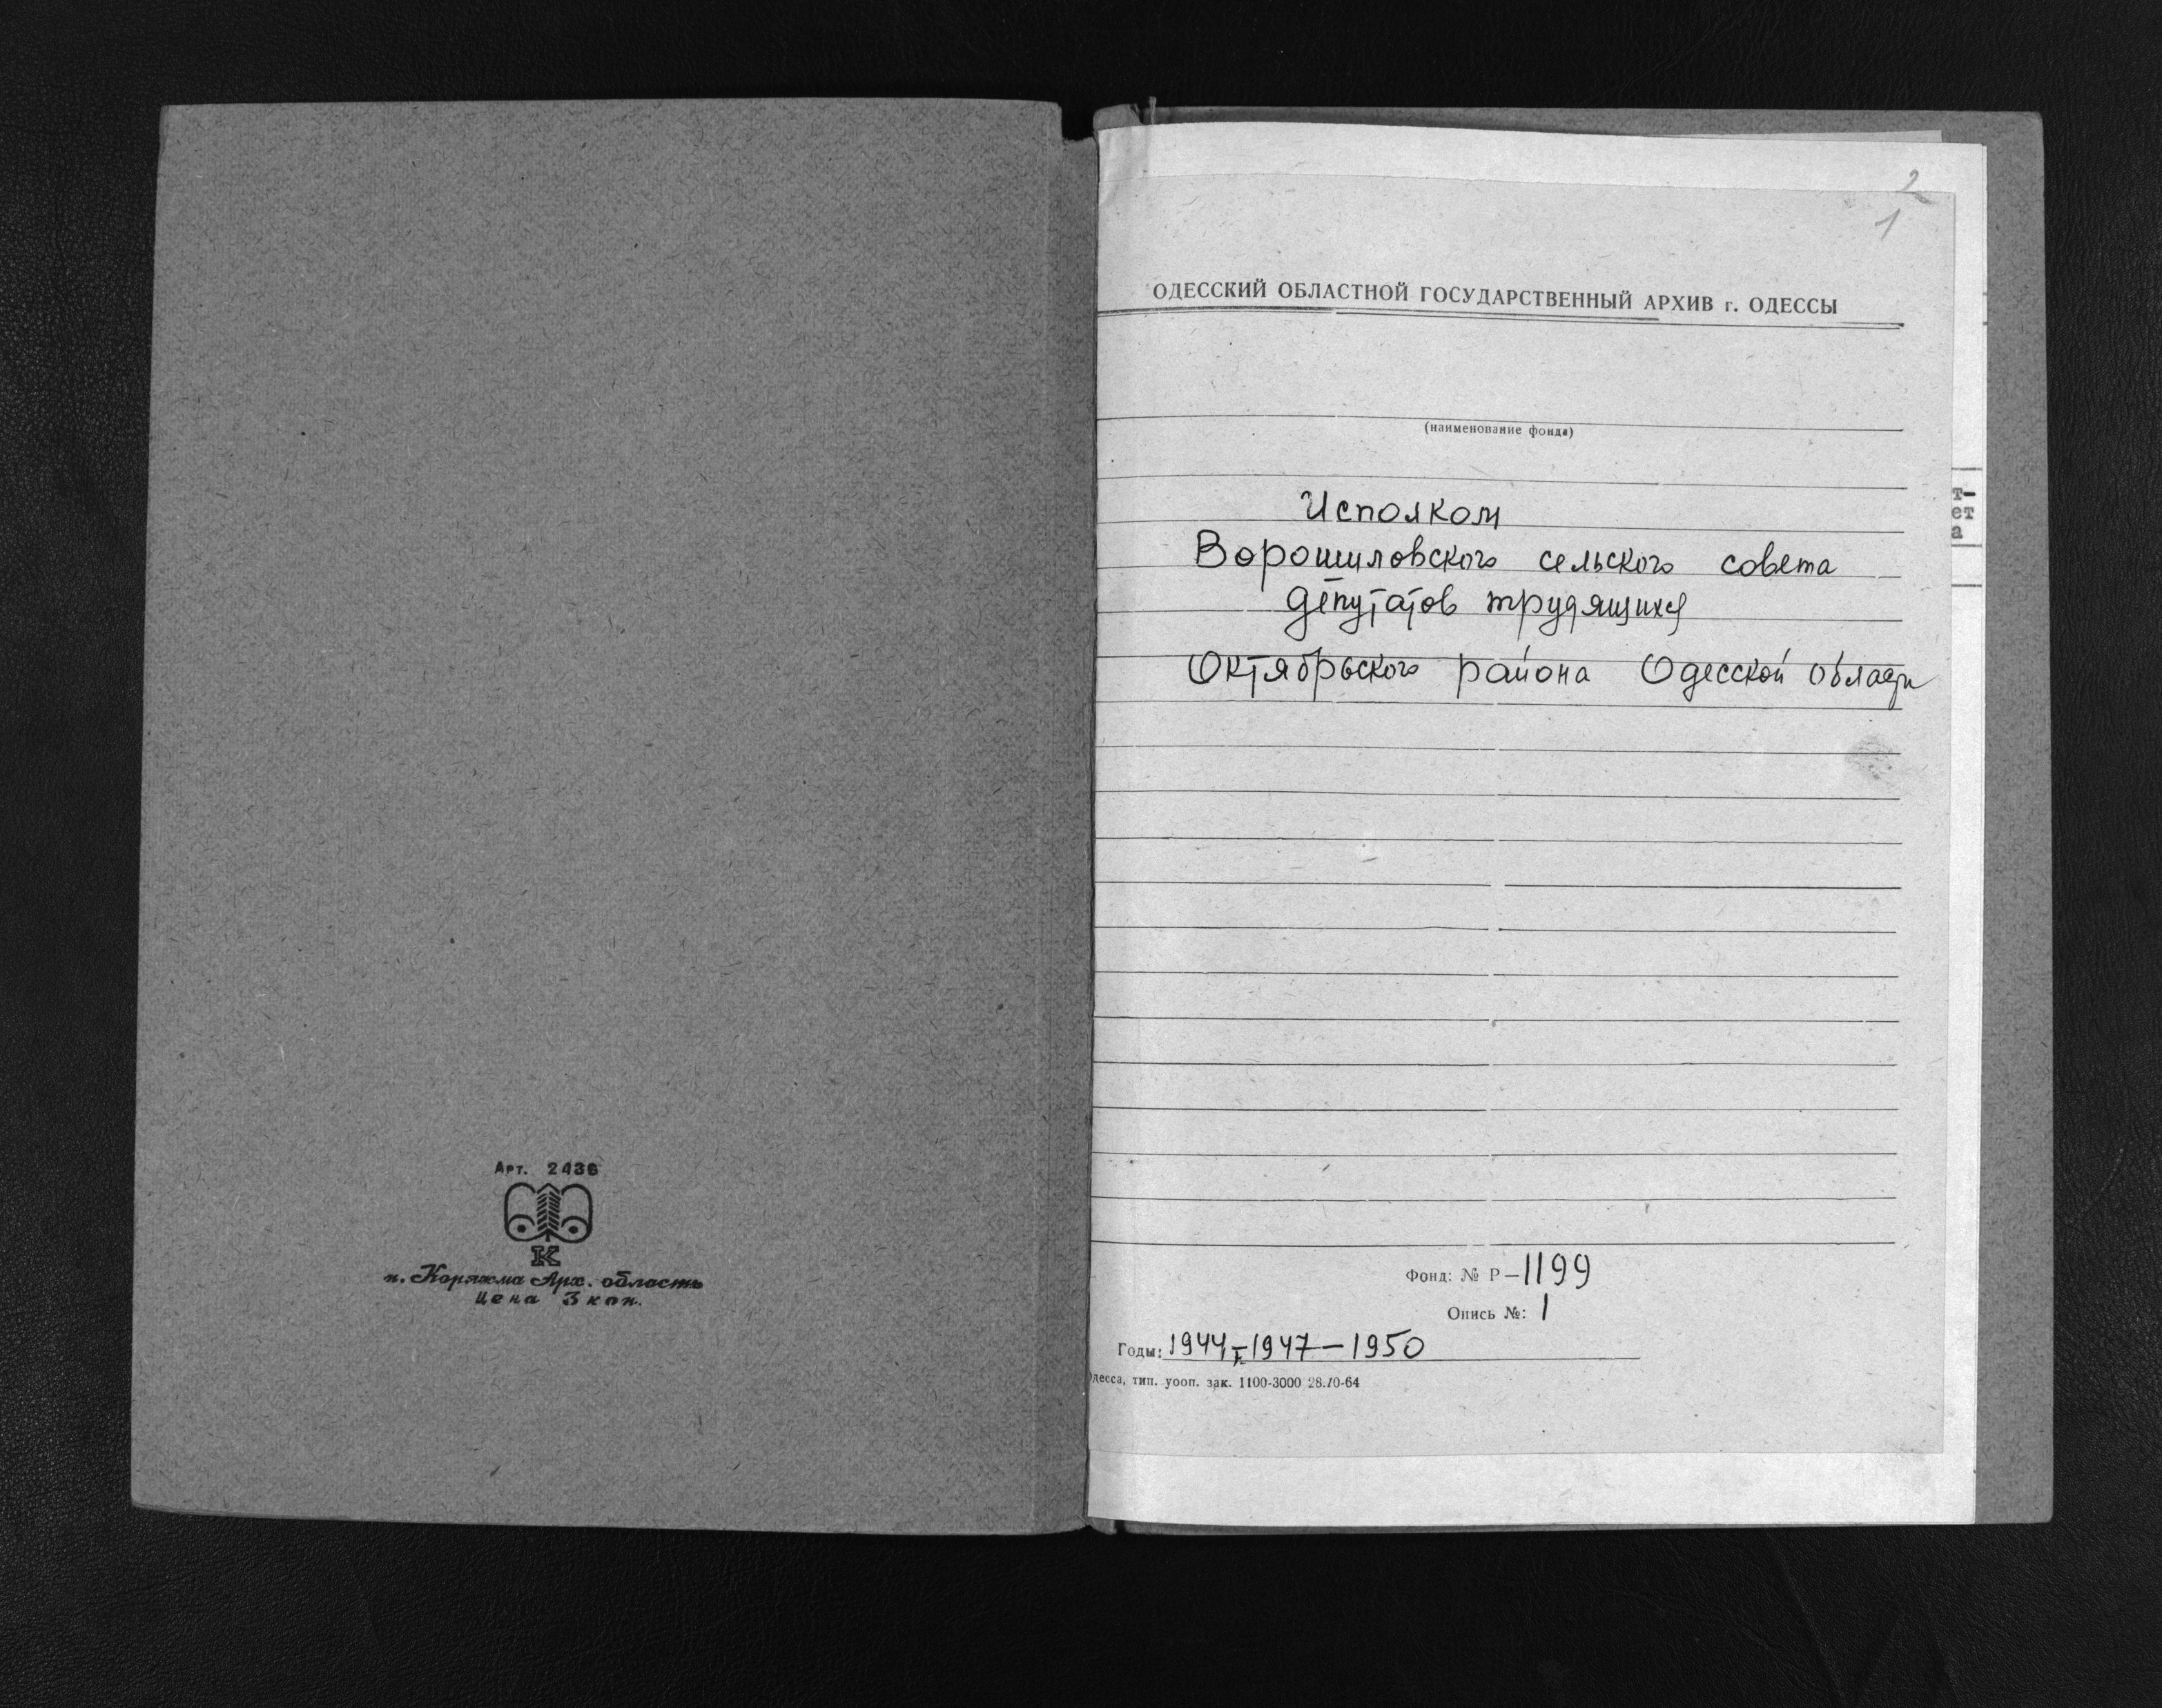 Арт. 2436
К
п. Коряжма Арх. область
Цена 3 коп.
2
1
ОДЕССКИЙ ОБЛАСТНОЙ ГОСУДАРСТВЕННЫЙ АРХИВ г. ОДЕССЫ
(наименование фонда)
Исполком
Ворошиловского сельского совета
депутатов трудящихся
Октябрьского района Одесской области
т-
ет
а
Фонд: № Р-1199
Опись №: 1
Годы: 1944, 1947-1950
десса, тип. уооп. зак. 1100-3000 28.10-64